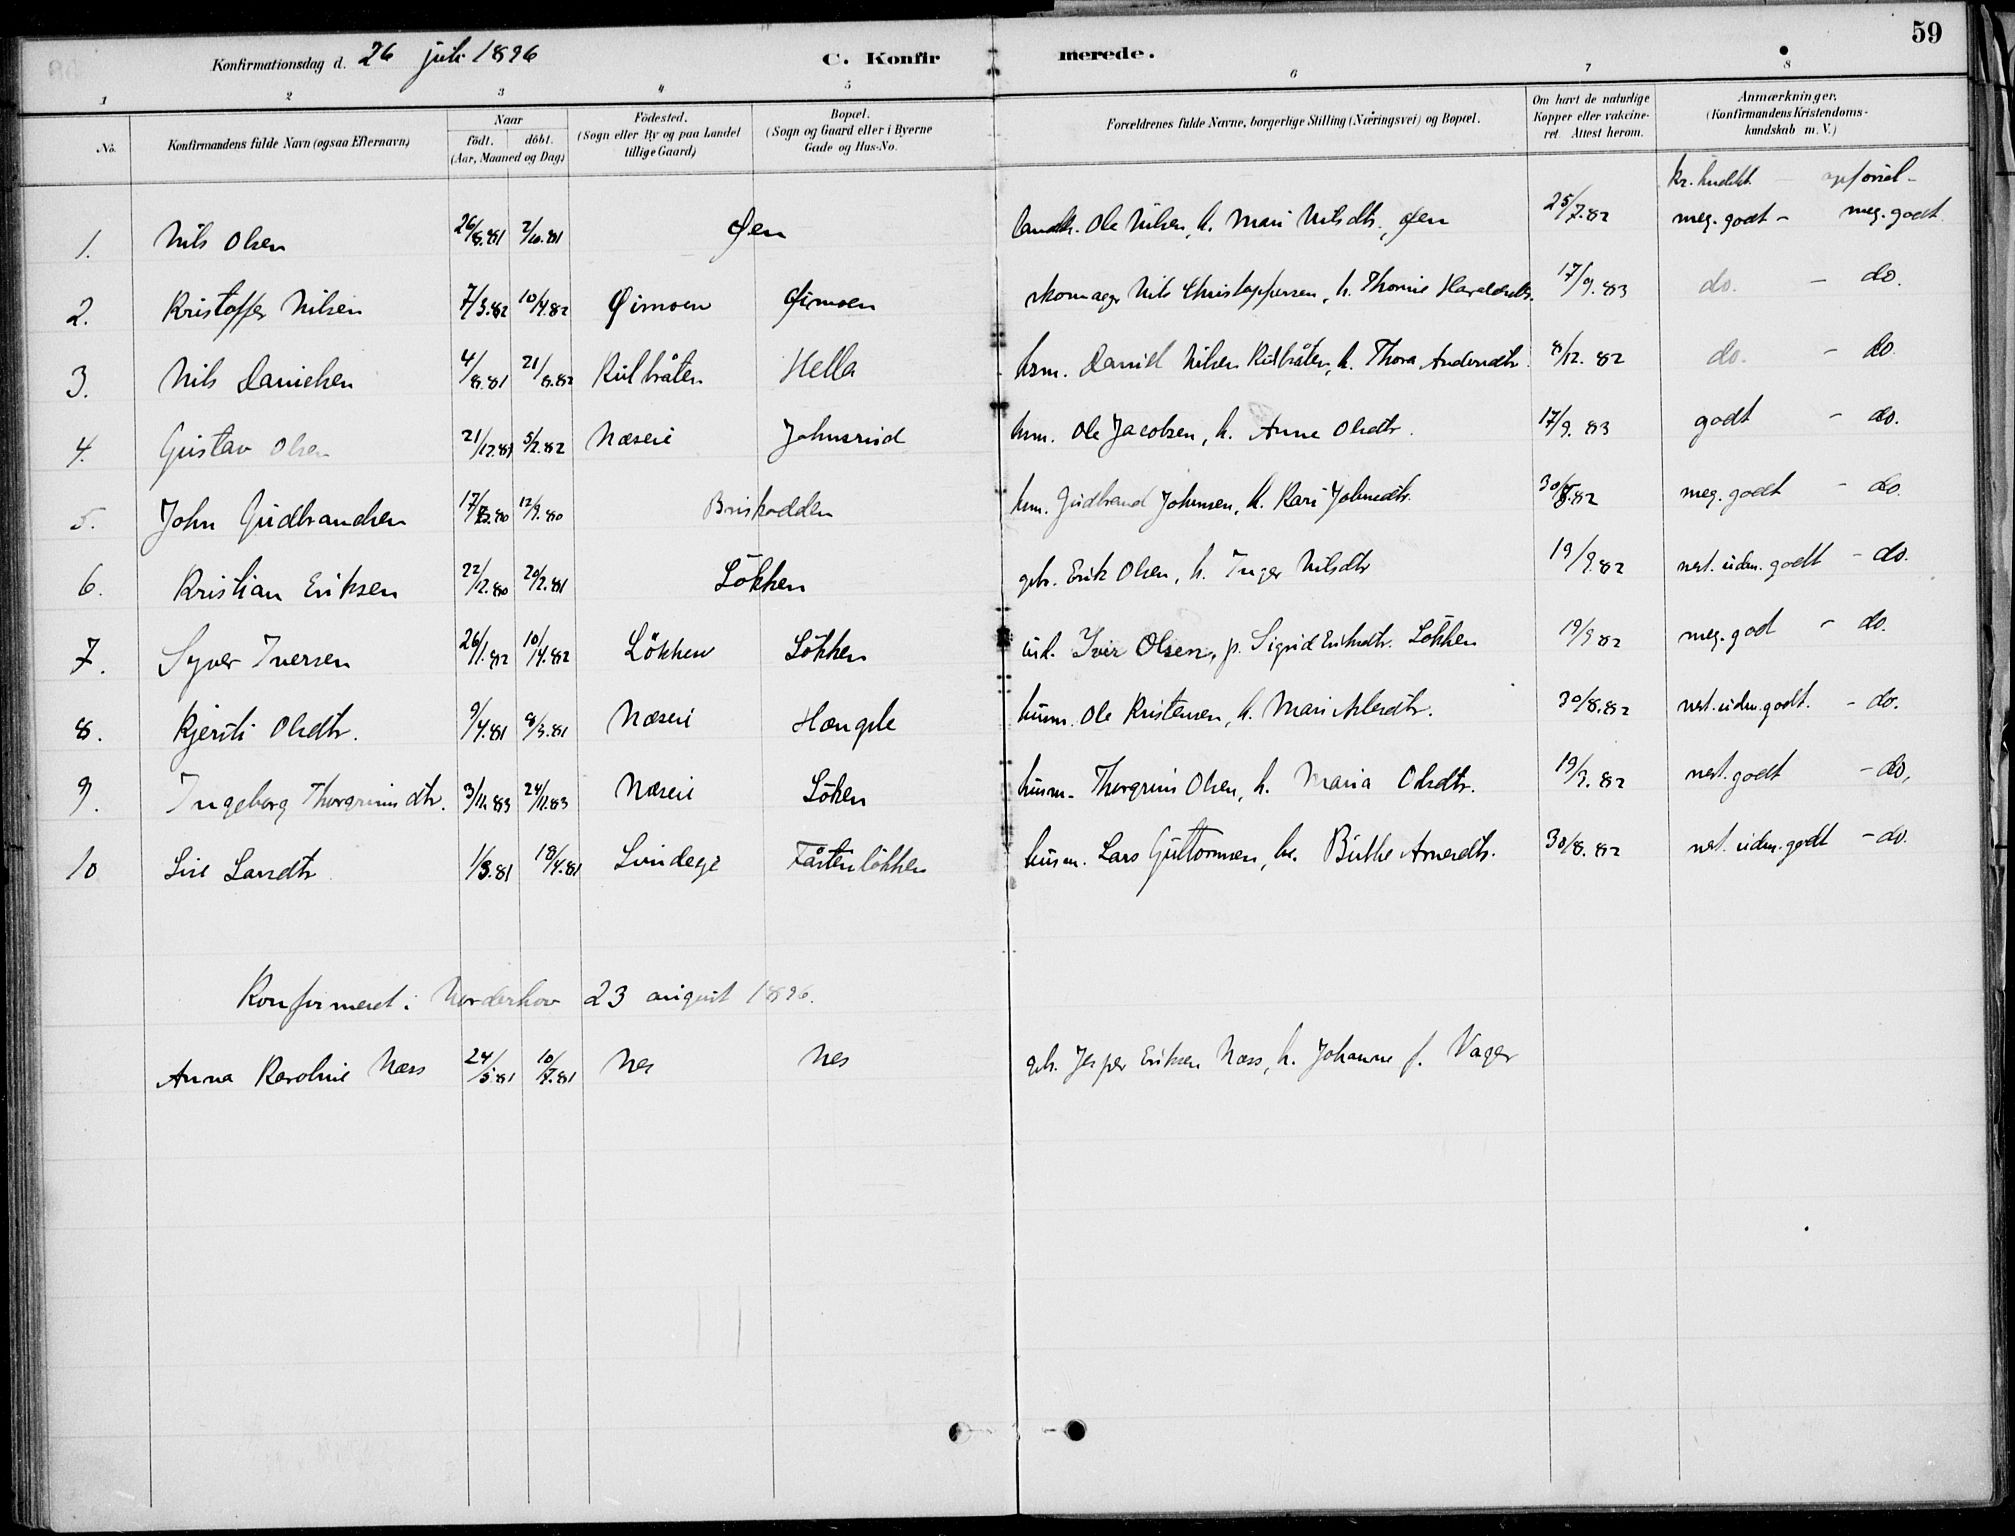 59
Konfirmationsdag d. 26 juli 1896 C. Konfirmerede.
1 2 3 4 5 6 7 8
No. Konfirmandens fulde Navn (ogsaa Efternavn) Naar födt. döbt. (Aar, Maaned og Dag) Födested. (Sogn eller By og paa Landet tillige Gaard) Bopæl. (Sogn og Gaard eller i Byerne Gade og Hus-No. Forældrenes fulde Navne, borgerlige Stilling (Næringsvei) og Bopæl. Om havt de naturlige Kopper eller vakcineret. Attest herom. Anmærkninger. (Konfirmandens Kristendomskundskab m. V.)
1. Nils Olsen 26/8.81 2/10.81 Øen Ole Nilsen, h. Mari Nilsdtr., Øen 25/7.82 meg. godt - meg. godt
2. Kristoffer Nilsen 7/3.82 10/4.82 Øimoen Øimoen skomager Nils Christophersen, h. Thorine Haraldsdtr. 17/9.83 do. - do.
3. Nils Danielsen 4/8.81 21/8.82 Kulbråten Hella hsm. Daniel Nilsen Kulbråten, h. Thora Andersdtr. 8/12.82 do. - do.
4. Gustav Olsen 21/12.81 5/2.82 Næseie Johnsrud hsm. Ole Jacobsen, h. Anne Olsdtr. 17/9.83 godt - do.
5. John Gudbrandsen 12/9.80 Briskodden hsm. Gudbrand Johnsen, h. Kari Johnsdtr. meg. godt - do.
6. Kristian Eriksen 22/12.80 20/2.81 Lökken gbr. Erik Olsen, h. Inger Nilsdtr 19/9.82 nest. uden. godt - do.
7. Syver Iversen 26/1.82 10/4.82 Lökken Lökken Iver Olsen, p. Sigrid Eriksdtr. Lökken 19/9 82 meg. god - do.
8. Kjersti Olsdtr. 9/4.81 Næseie husm. Ole Kristensen, h. Mari 30/8.82 nest. uden. godt. - do.
9. Ingeborg Thorgrimsdtr. 3/11.83 24/11.83 Næseie Löken husm. Thorgrim Olsen, h. Maria Olsdtr. 19/9.82 nest. godt - do.
10 Lise Larsdtr 1/3.81 18/4.81 Lindeeie Tåstenlökken husm. Lars Guttormsen, h. Birthe Arnesdtr. 30/8.82 nest. uden. godt - do.
Konfirmeret i Norderhov 23 august 1896.
Anna Karoline Næss 24/5.81 10/7.81 Nes Nes gbr. Jesper Eriksen Næss, h. Johanne f. Vager